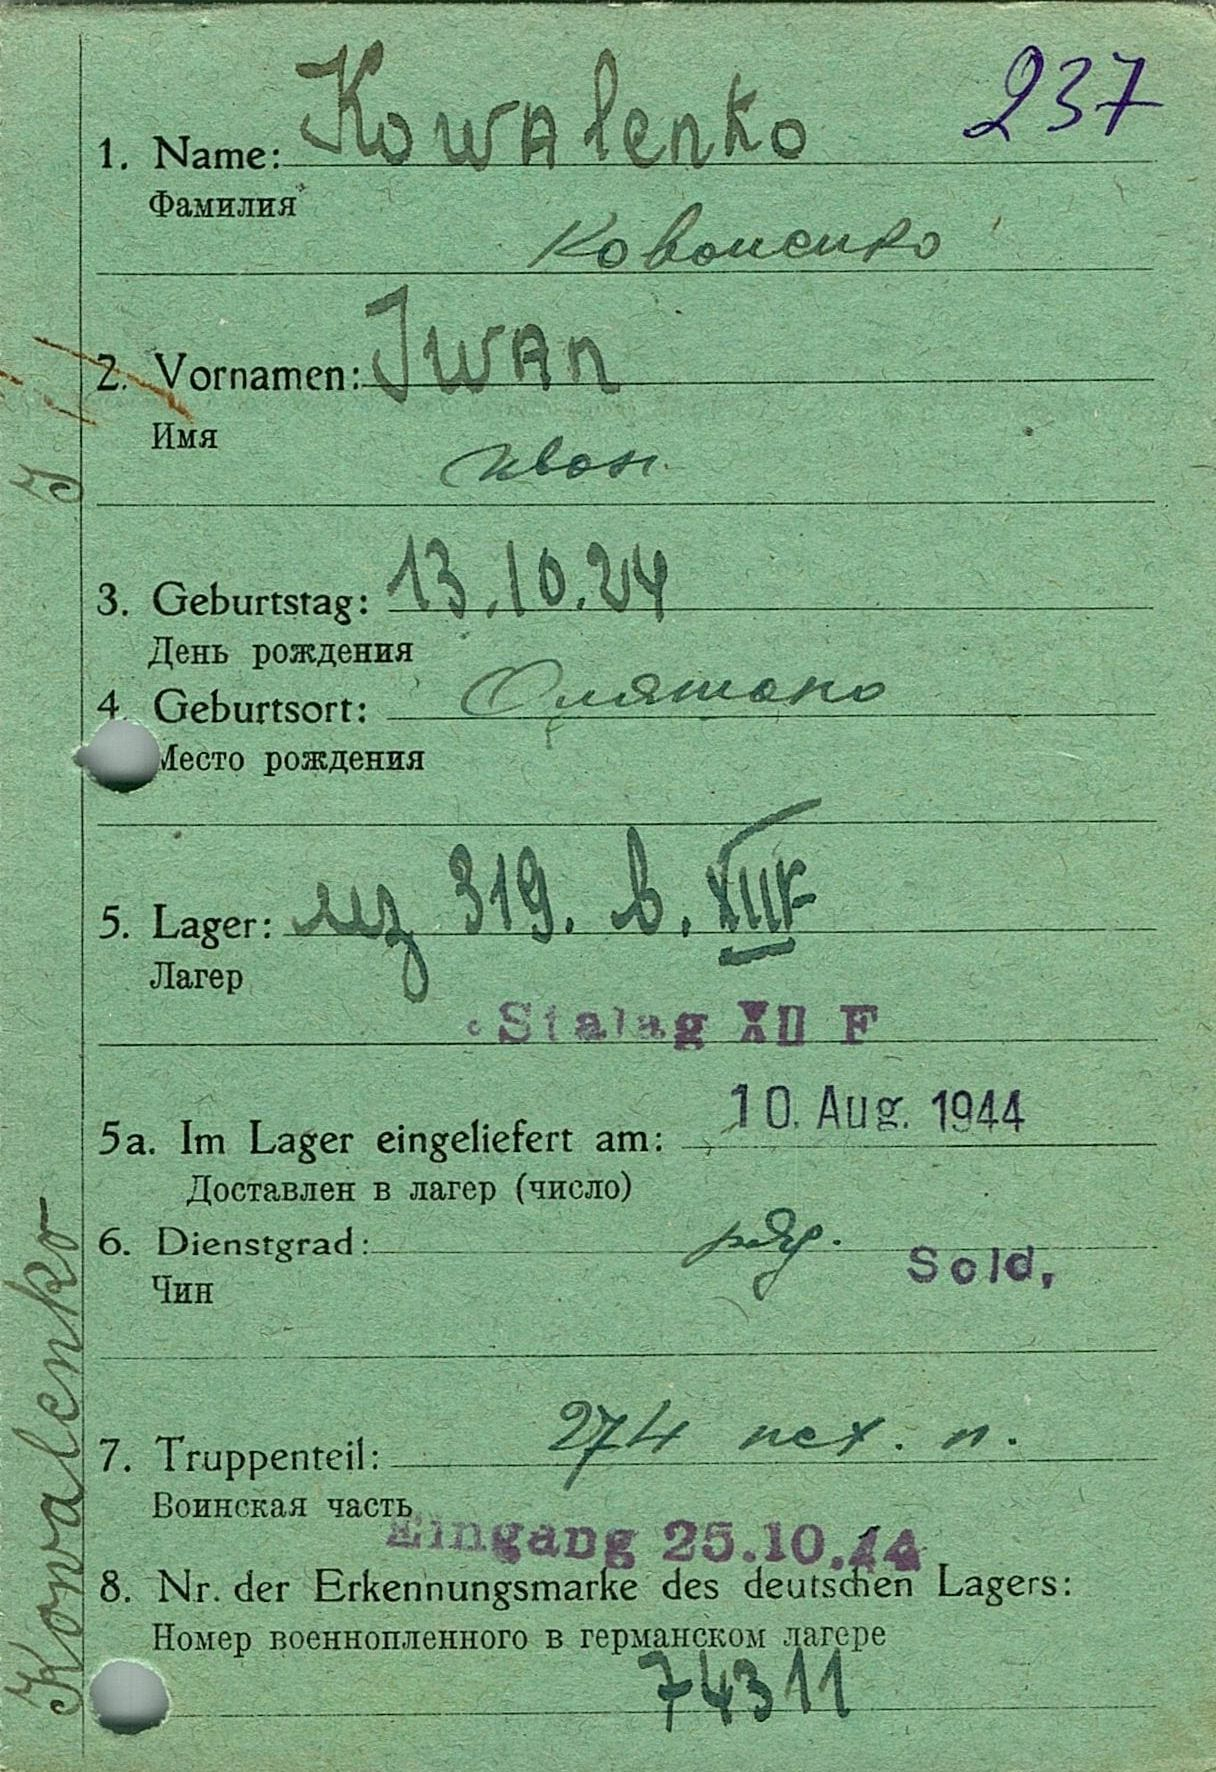 237
1. Name: Kowalenko
Фамилия
Коваленко
2. Vornamen: Iwan
Имя
Иван
3. Geburtstag: 13.10.24
День рождения
4. Geburtsort:
Место рождения
5. Lager: 319. b. XII F
Лагер
Stalag XII F
10. Aug. 1944
5a. Im Lager eingeliefert am:
Доставлен в лагер (число)
6. Dienstgrad: ряд.
Sold.
Чин
7. Truppenteil: 274 пех. п.
Воинская часть
Eingang 25.10.44
8. Nr. der Erkennungsmarke des deutschen Lagers:
Номер военнопленного в германском лагере
74311
Kowalenko J